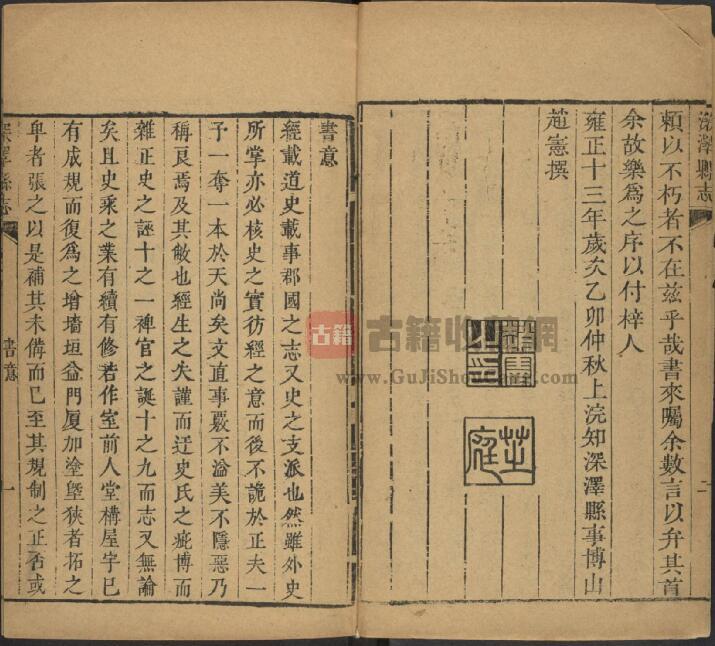 深澤縣志
賴以不朽者不在兹乎哉書來囑余數言以弁其首
余故樂為之序以付梓人
雍正十三年歲次乙卯仲秋上浣知深澤縣事博山
趙憲撰
二
芷庭
古籍
古籍收藏網
www.GuJiShouCang.com
書意
經載道史載事郡國之志又史之支派也然雖外史
所掌亦必核史之實彷經之意而後不詭於正夫一
予一奪一本於天尚矣文直事覈不溢美不隱惡乃
稱良焉及其敝也經生之失謹而迂史氏之疵博而
雜正史之誣十之一稗官之誕十之九而志又無論
矣且史乘之業有續有修若作室前人堂構屋宇已
有成規而復為之增墻垣益門厦加塗塈狹者拓之
卑者張之以是補其未備而已至其規制之正否或
深澤縣志
書意
一